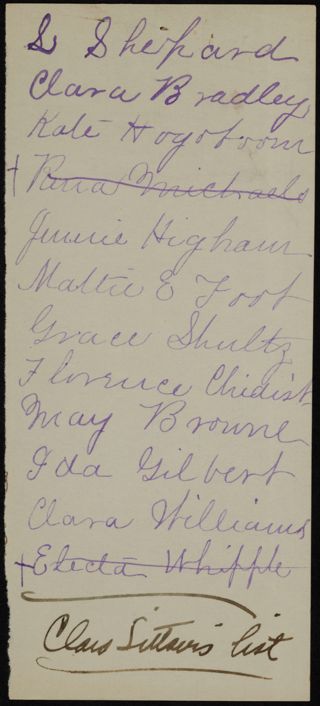 S Shepard
Clara Bradley
Kate Hogoboom
Rena Michaels
Jennie Higham
Mattie E Foot
Grace Shultz
Florence Chidist
May Browne
Ida Gilbert
Clara Williams
Electa Whipple
list